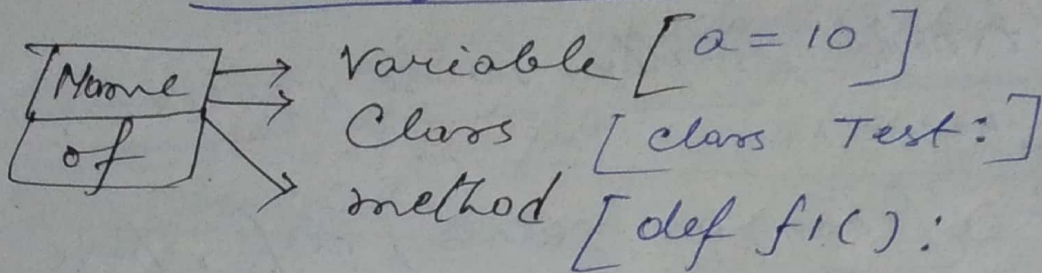 Name
of
Variable [ a = 10 ]
Class [ class Test: ]
method [ def f1():